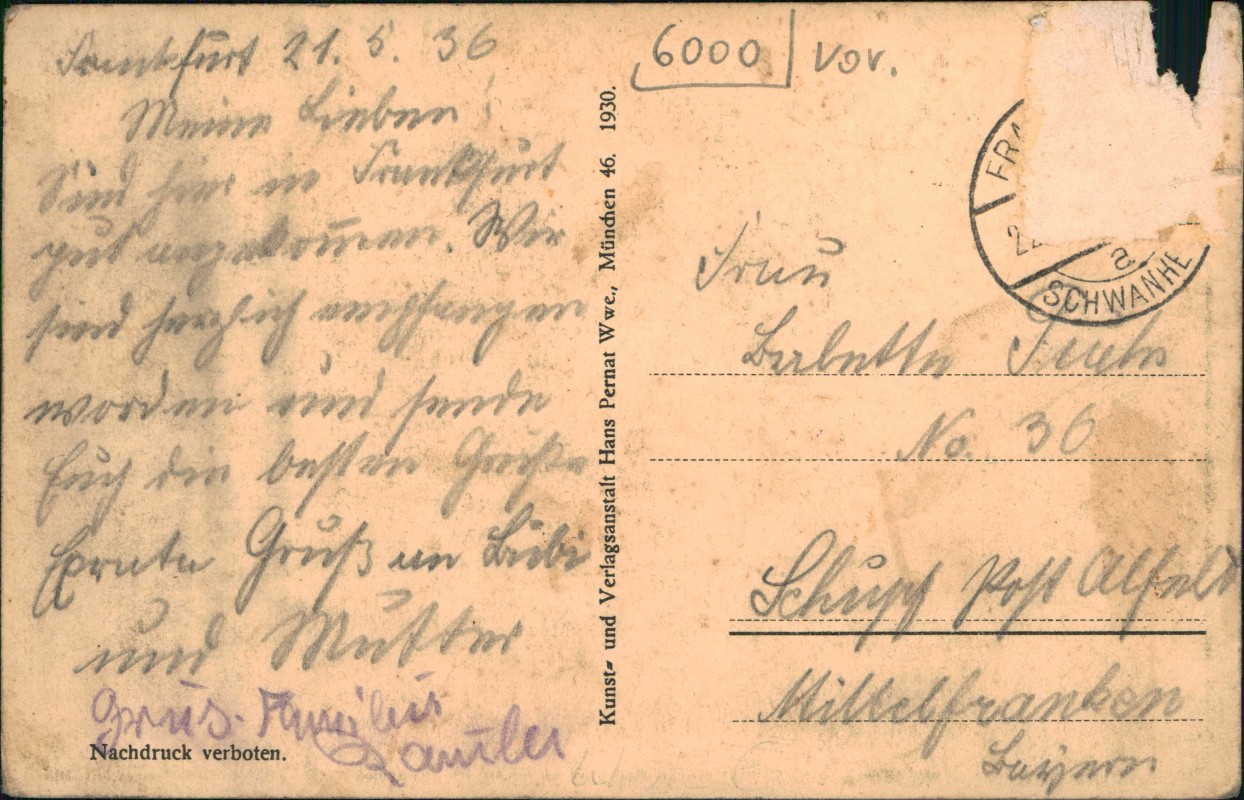 Frankfurt 21.5.36
Meine Lieben!
Sind hier in Frankfurt
gut angekommen. Wir
sind herzlich empfangen
worden und sende
Euch die besten Grüße
Gruß an Bubi
und Mutter
Grus. Familie
Nachdruck verboten.
Kunst- und Verlagsanstalt Hans Pernat Wwe., München 46. 1930.
6000 vor.
FRA
22
a
SCHWANHE
Frau
Babette Fuchs
No. 36
Schupf Post Alfeld
Mittelfranken
Bayern